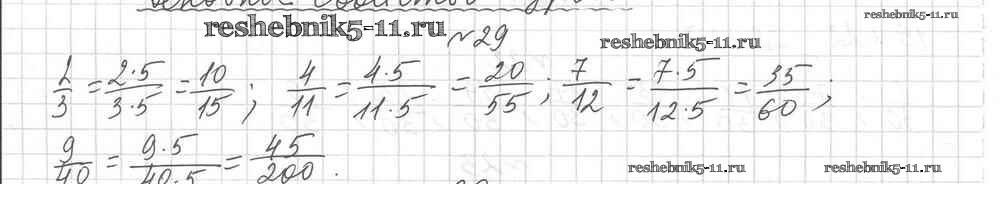 основное свойство
reshebnik5-11.ru
reshebnik5-11.ru
№29
reshebnik5-11.ru
2/3 = 2·5/3·5 = 10/15; 4/11 = 4·5/11·5 = 20/55; 7/12 = 7·5/12·5 = 35/60;
9/40 = 9·5/40·5 = 45/200.
reshebnik5-11.ru
reshebnik5-11.ru